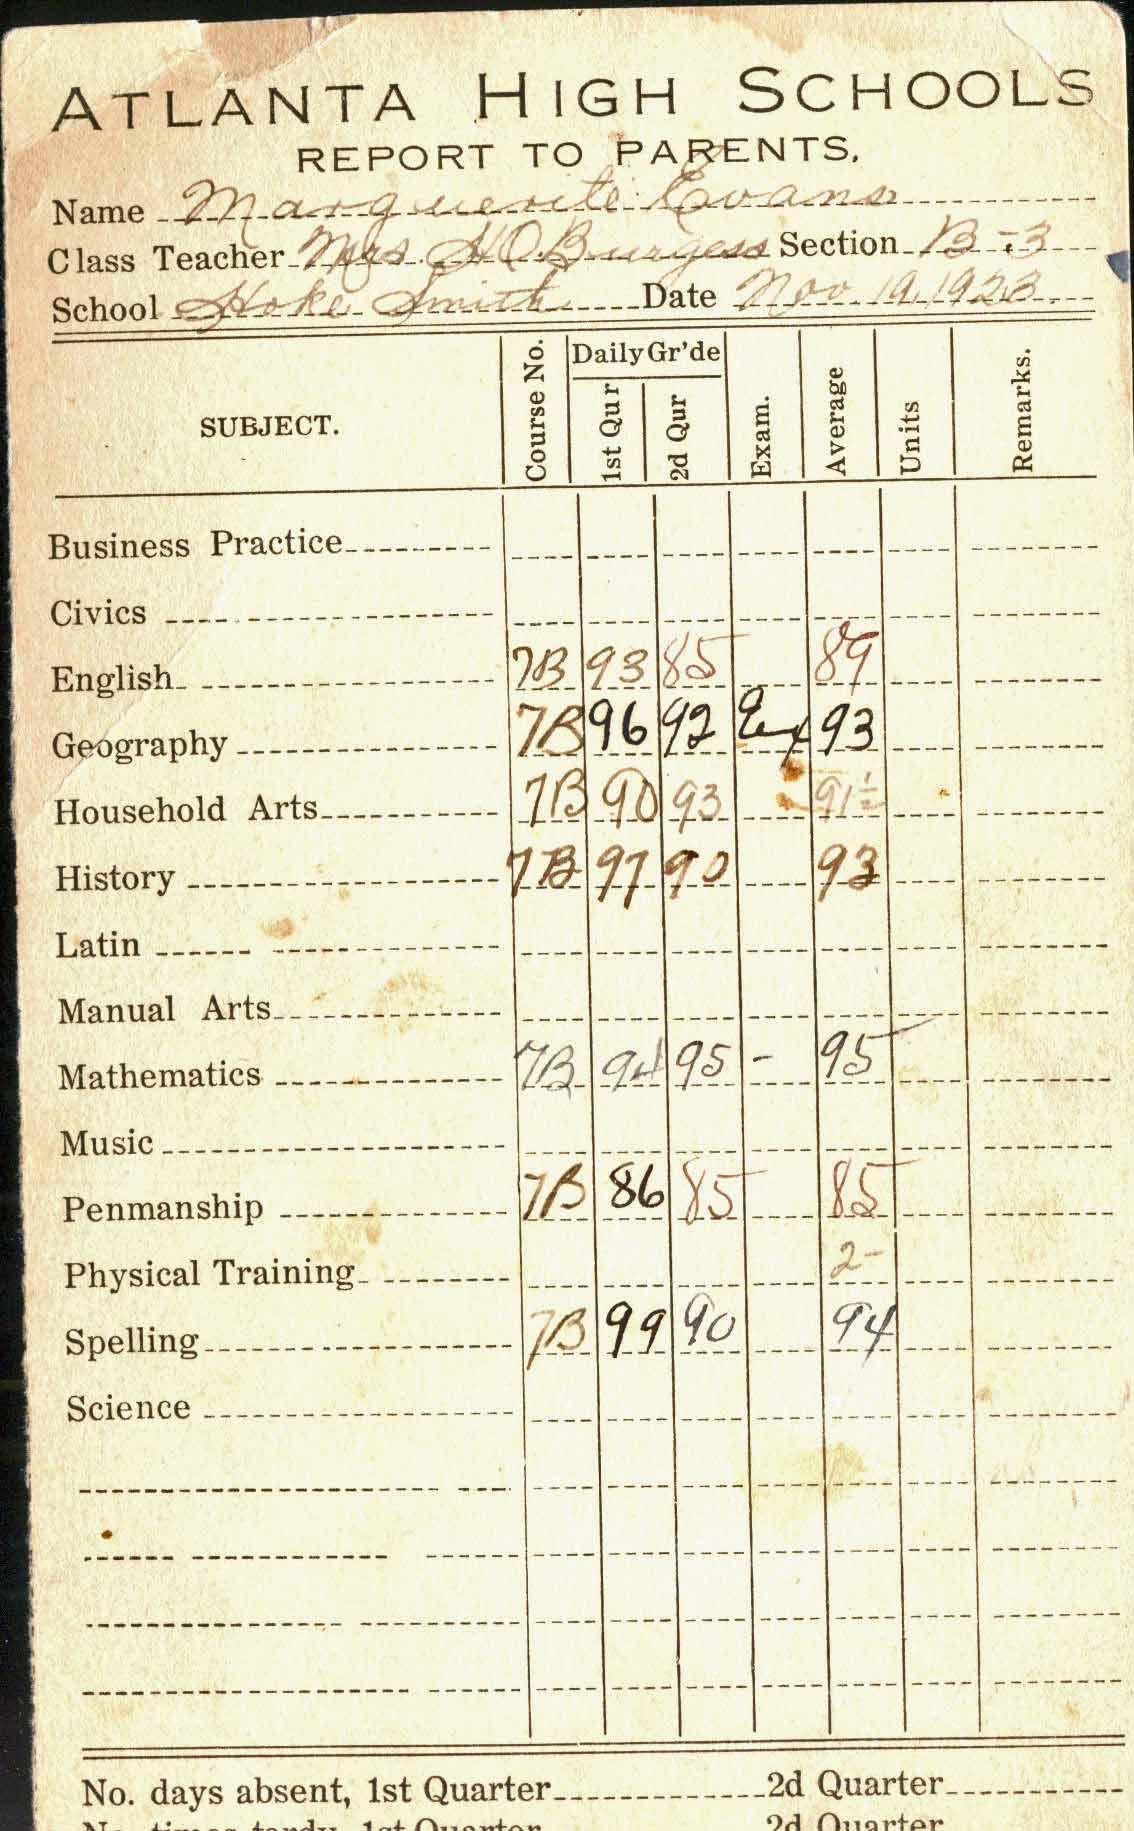 ATLANTA HIGH SCHOOLS
REPORT TO PARENTS.
Name Marguerite Evans
Class Teacher Mrs H O Burgess Section B-3
School Hoke Smith Date Nov 19, 1923.
SUBJECT. Course No. Daily Gr'de 1st Qur 2d Qur Exam. Average Units Remarks.
Business Practice
Civics
English 7B 93 85 89
Geography 7B 96 92 Ex 93
Household Arts 7B 90 93 91½
History 7B 97 90 93
Latin
Manual Arts
Mathematics 7B 94 95 - 95
Music
Penmanship 7B 86 85 85
Physical Training 2-
Spelling 7B 99 90 94
Science
No. days absent, 1st Quarter 2d Quarter
No. times tardy, 1st Quarter 2d Quarter